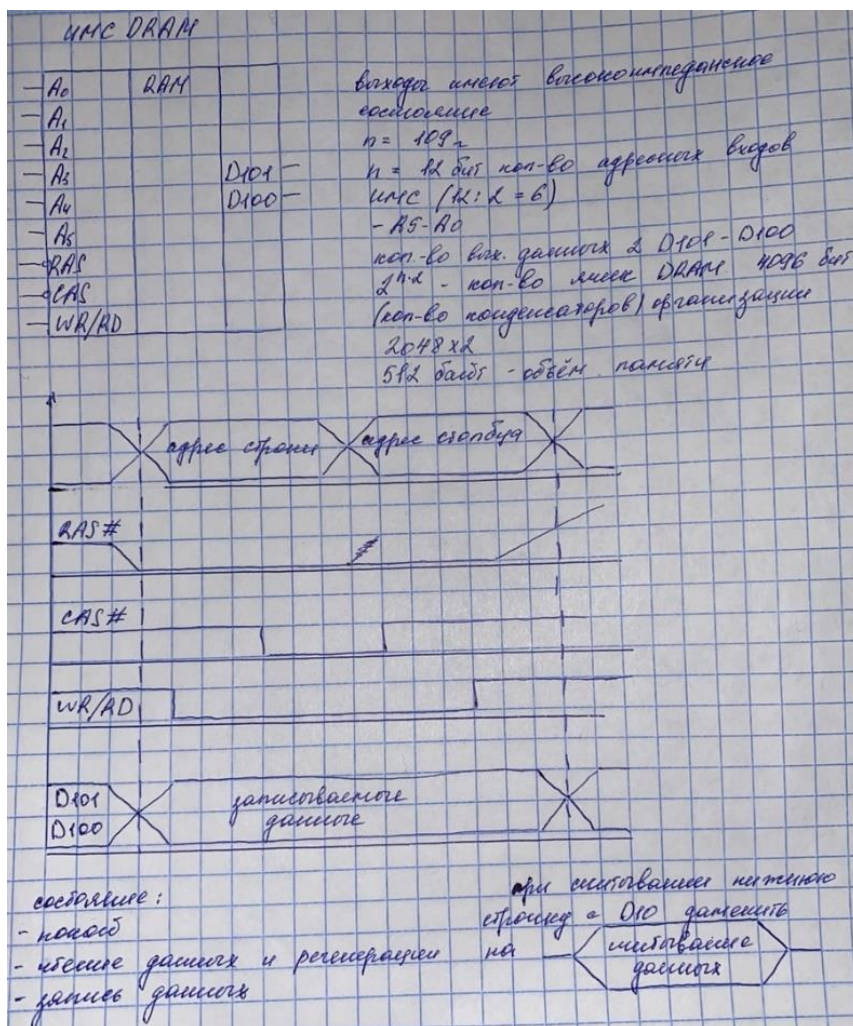 ИМС DRAM
A0 RAM
A1
A2
A3 D101
A4 D100
A5
RAS
CAS
WR/RD
выходы имеют высокоимпедансное
состояние
n =
n = 12 бит кол-во адресных входов
ИМС (12:2 = 6)
- A5-A0
кол-во вых. данных 2 D101-D100
- кол-во ячеек DRAM 4096 бит
(кол-во конденсаторов) организации
2048x2
512 байт - объём памяти
адрес строки адрес столбца
RAS#
CAS#
WR/RD
D101 записываемые
D100 данные
состояние:
- покой
- чтение данных и регенерации
- запись данных
при считывании нижнюю
строчку с D10 заменить
на считываемые
данных